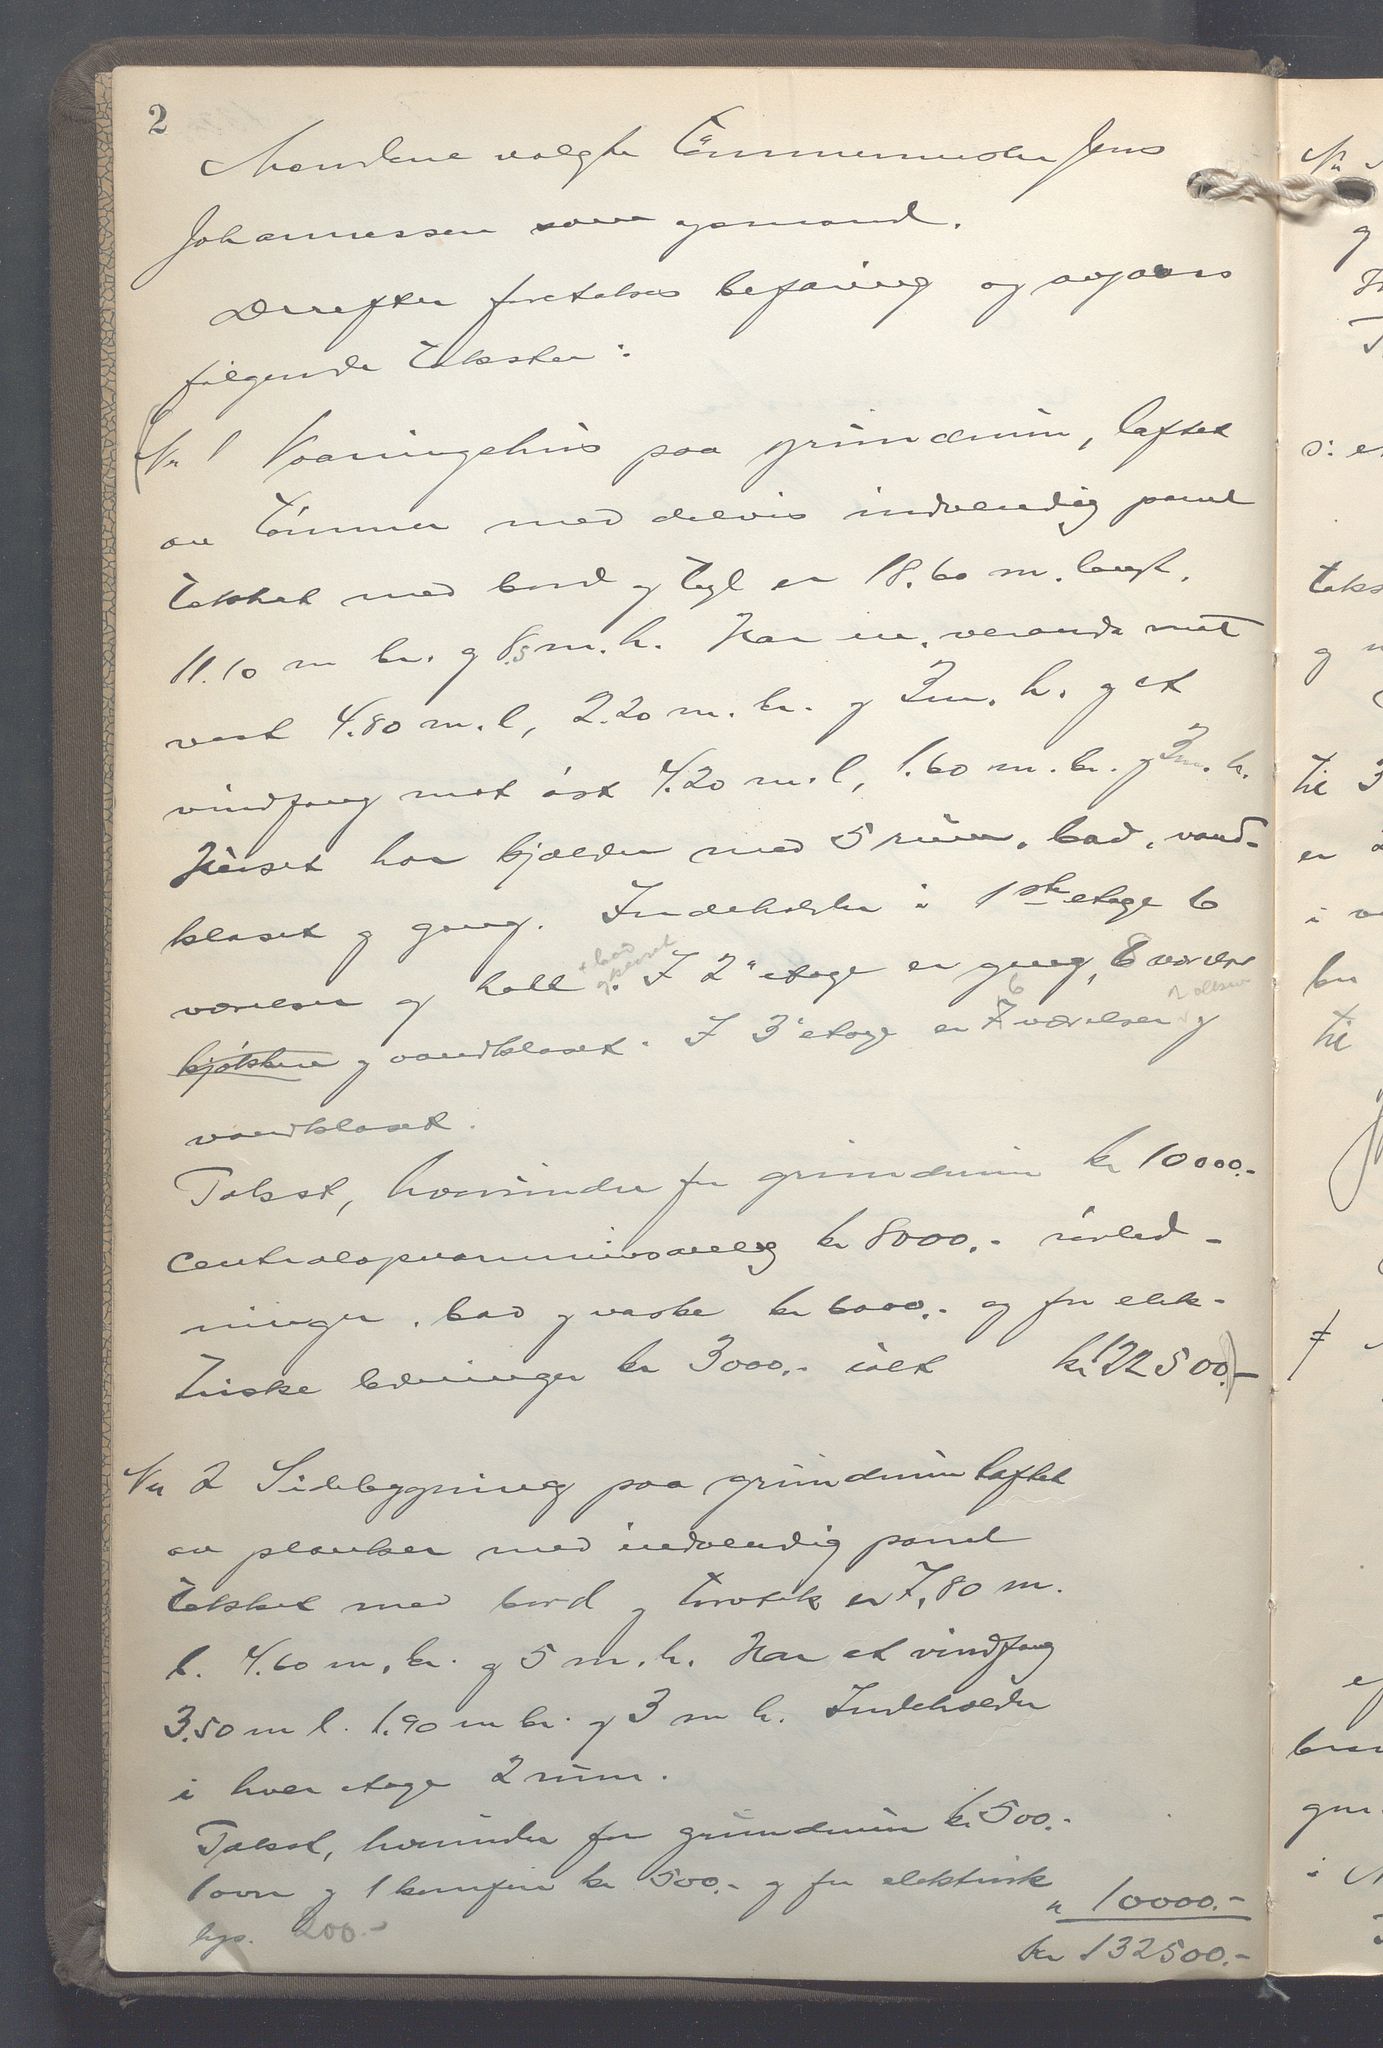 2
Mændene valgte Tömmermester Jens
Johannessen som opmand.
Derefter foretokes befaring og avgaves
følgende takster:
(Nr 1 Vaaningshus paa grundmur, laftet
av tömmer med delvis indvendig panel
tækket med bord og tegl er 18.60 m. langt,
11.10 m br. og 8.5 m. h. Har en veranda mot
vest 4.80 m. l, 2.20 m. br. og 3 m. h. og et
vindfang mot öst 4.20 m. l, 1.60 m. br. og 3 m. h.
Huset har kjælder med 5 rum, bad, vand-
kloset og gang. Indeholder i 1ste etage 6
værelser og hall + bad og kloset. I 2" etage er gang, 8 værelser
kjøkken og vandkloset. I 3" etage er 7 6 værelser og
vandkloset.
Takst, hvorunder for grundmur kr 10000.-
centralopvarmningsanlæg kr 8000.- rörled-
ninger, bad og vaske kr 6000.- og for elek-
triske ledninger kr 3000.- ialt kr 122500.-)
Nr 2 Sidebygning paa grundmur laftet
av planker med indvendig panel
tækket med bord og torvtak er 7,80 m.
l. 4.60 m. br. og 5 m. h. Har et vindfang
3.50 m l. 1.90 m br. og 3 m h. Indeholder
i hver etage 2 rum.
Takst, hvorunder for grundmur kr 500.-
1 ovn og 1 komfur kr 500.- og for elektrisk
lys. 200.- " 10000.-
kr 132500.-